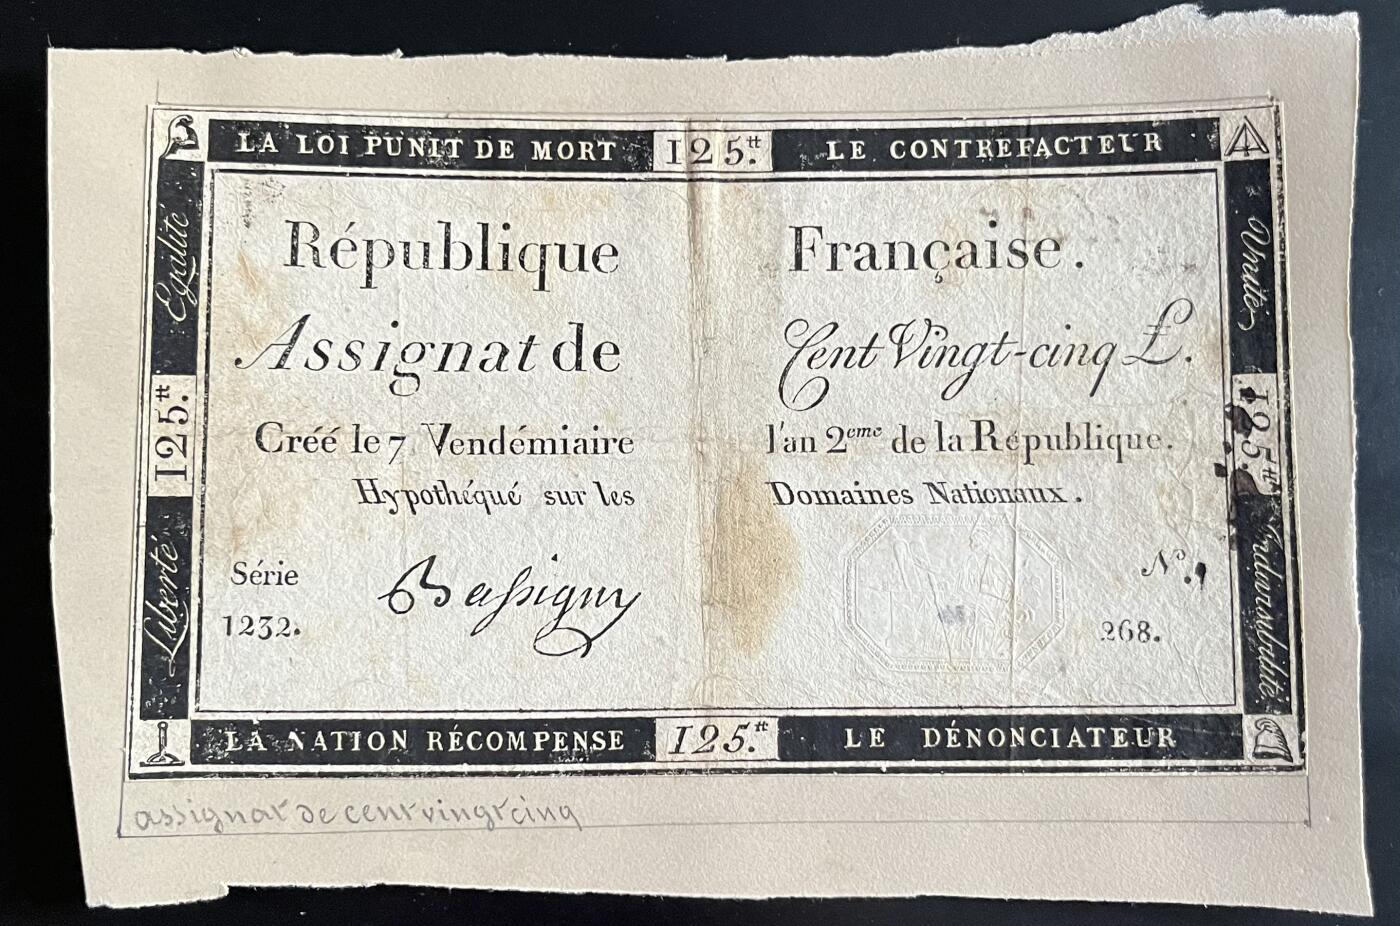 LA LOI PUNIT DE MORT 125.tt LE CONTREFACTEUR
République Française.
Assignat de Cent Vingt-cinq £.
Créé le 7 Vendémiaire l'an 2eme de la République.
Hypothéqué sur les Domaines Nationaux.
Série Bassigny N°.
1232. 268.
Égalité
125.tt
Liberté
Unité
125.tt
Indivisibilité
LA NATION RÉCOMPENSE 125.tt LE DÉNONCIATEUR
assignat de cent vingt cinq